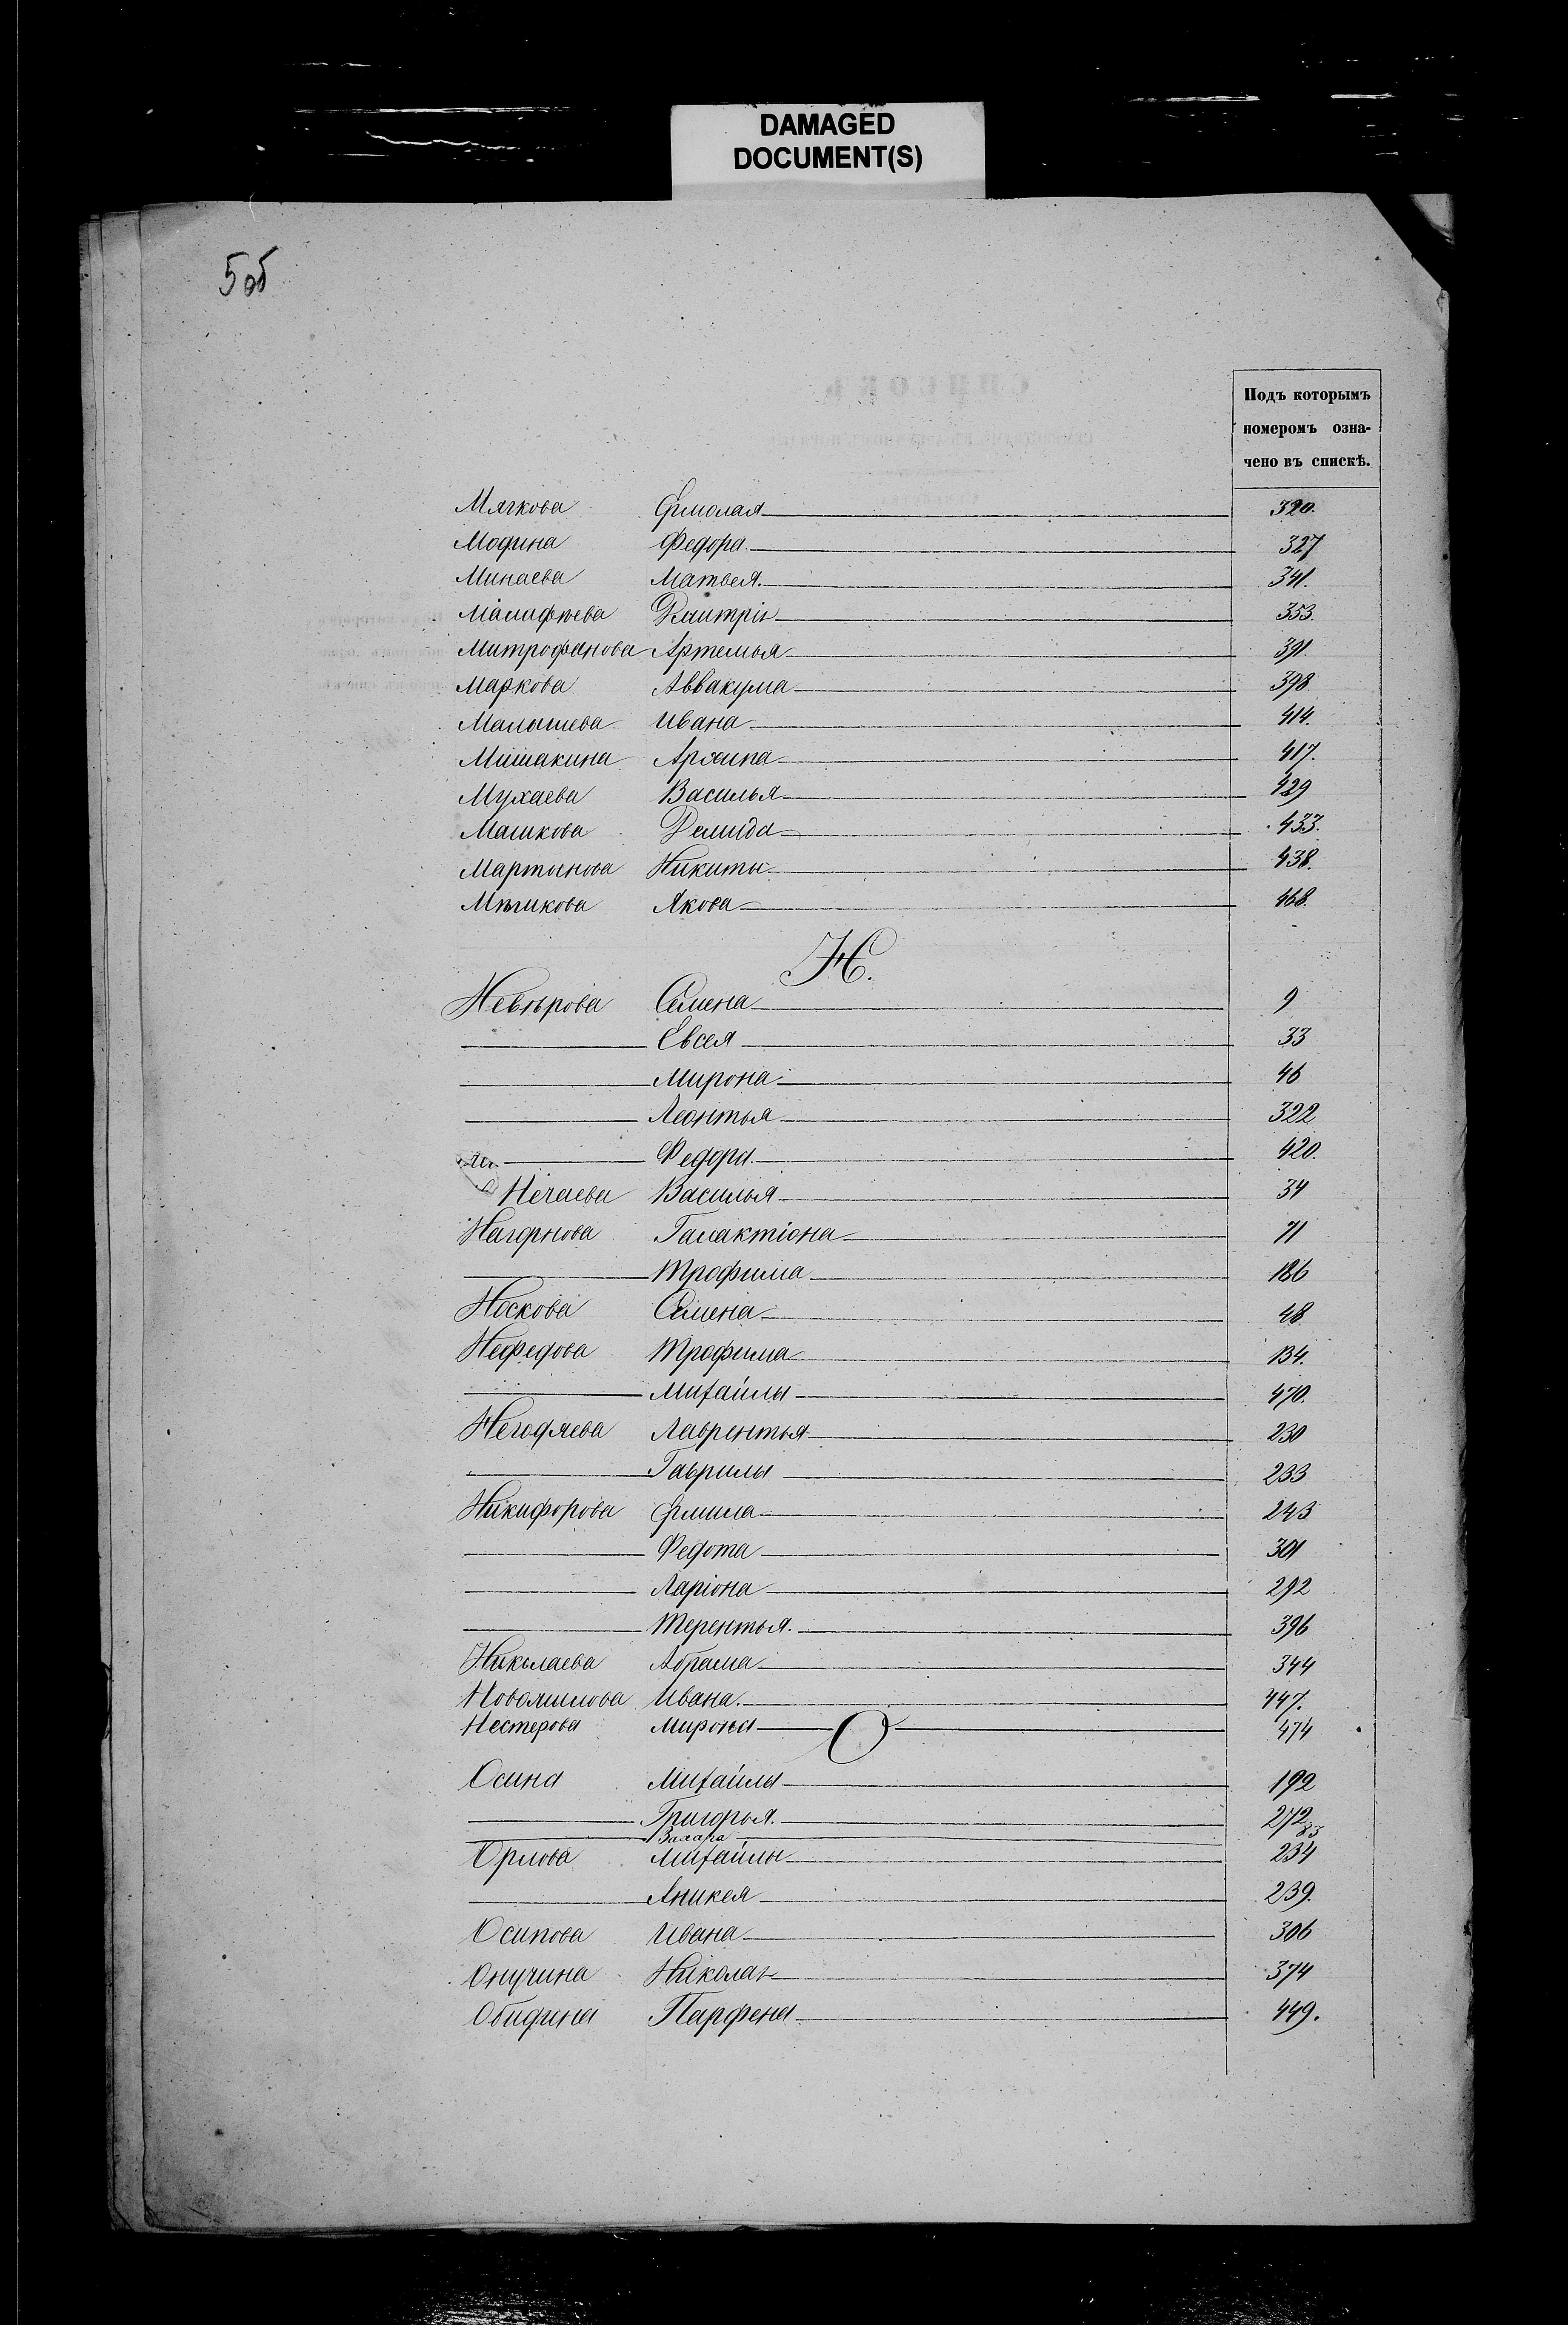 DAMAGED
DOCUMENT(S)
5 об
Подъ которымъ
номеромъ озна-
чено въ спискѣ.
Мягкова Ермолая 320.
Модина Федора 327
Минаева Матвея 341.
Малафѣева Дмитрія 353.
Митрофанова Артемья 391.
Маркова Аввакума 398
Малышева Ивана 414.
Мишакина Архипа 417.
Мухаева Василья 429
Машкова Демида 433.
Мартынова Никиты 438.
Якова 468.
Н.
Невѣрова Семена 9
Евсея 33
Мирона 46
Леонтья 322
Федора 420.
Нечаева Василья 34
Нагорнова Галактіона 71
Трофима 186
Носкова Семена 48
Нефедова Трофима 134.
Михайлы 470.
Негодяева Лаврентья 230
Гаврилы 233
Никифорова Ермила 243
Федота 301
Ларіона 292
Терентья 396
Николаева Абрама 344
Ивана 447.
Нестерова Мирона 474
О
Осина Михайлы 192
Григорья 272
Захара 83
Орлова Михайлы 234
Аникея 239.
Осипова Ивана 306
Онучина Николая 374
Обидина Парфена 449.